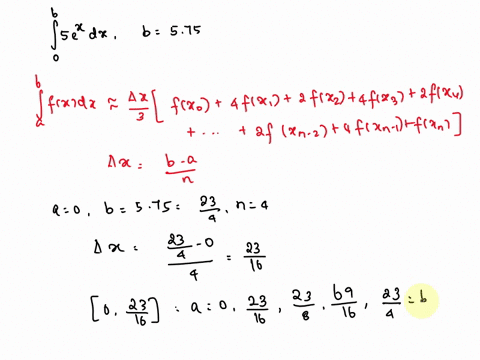 ∫₀ᵇ 5eˣ dx, b = 5.75
∫ₐᵇ f(x)dx ≈ Δx/3 [ f(x₀) + 4f(x₁) + 2f(x₂) + 4f(x₃) + 2f(x₄)
+ ... + 2f(xₙ₋₂) + 4f(xₙ₋₁) + f(xₙ) ]
Δx = b-a/n
a=0, b = 5.75 = 23/4, n=4
Δx = (23/4 - 0)/4 = 23/16
[0, 23/16] : a = 0, 23/16, 23/8, 69/16, 23/4 = b